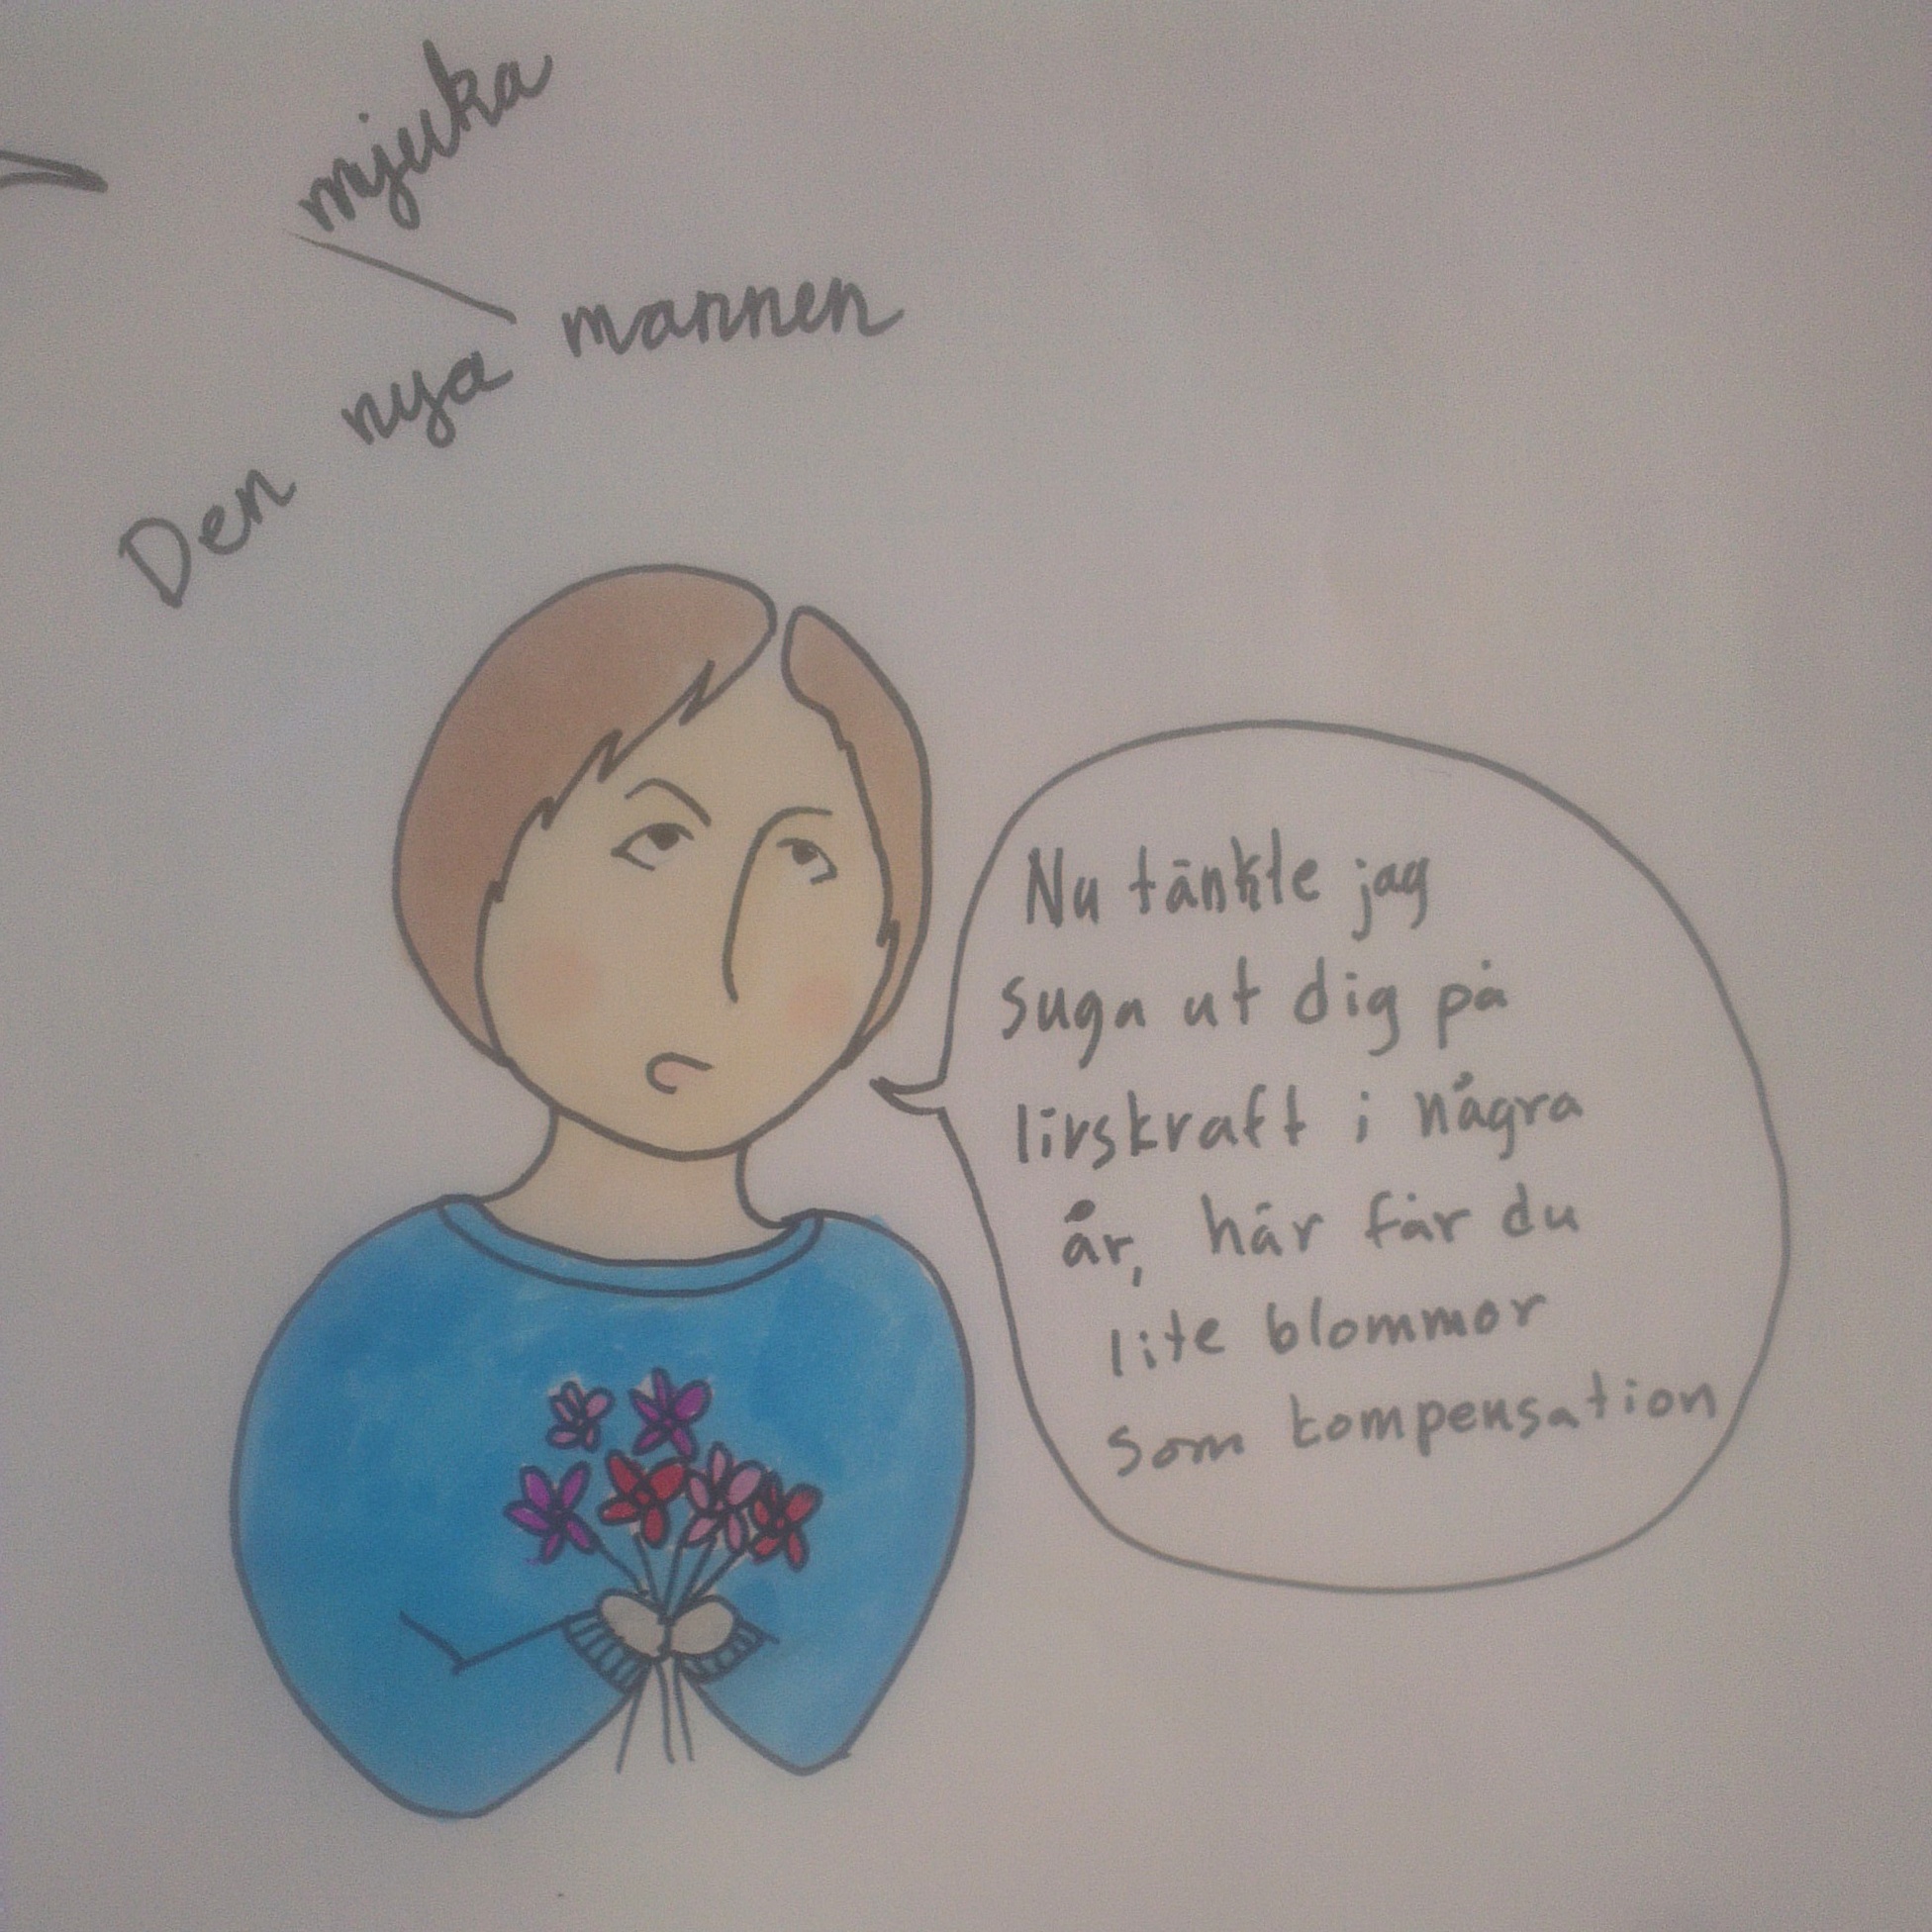 mjuka
Den nya mannen
Nu tänkte jag
suga ut dig på
livskraft i några
år, här får du
lite blommor
som kompensation